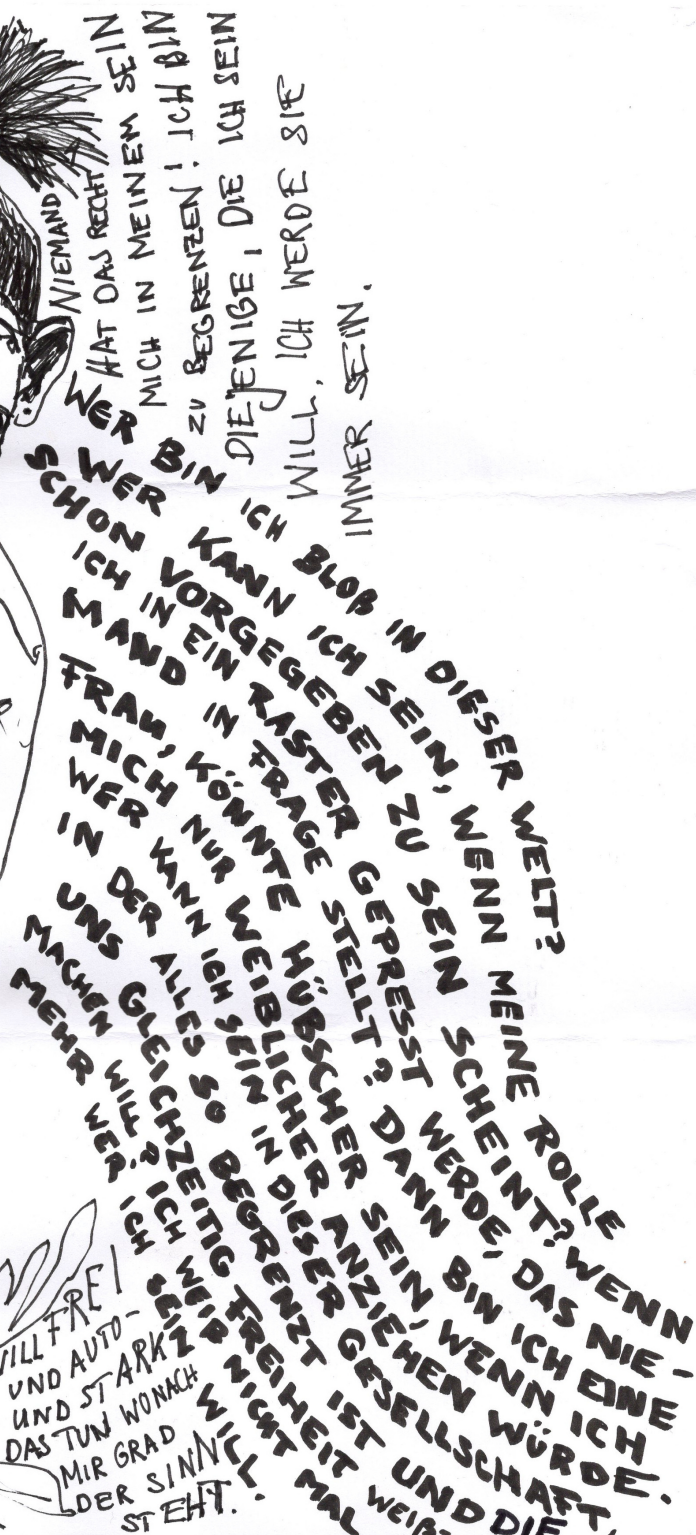 NIEMAND
HAT DAS RECHT
MICH IN MEINEM SEIN
ZU BEGRENZEN! ICH BIN
DIEJENIGE, DIE ICH SEIN
WILL. ICH WERDE SIE
IMMER SEIN.
WER BIN ICH BLOß IN DIESER WELT?
WER KANN ICH SEIN, WENN MEINE ROLLE
SCHON VORGEGEBEN ZU SEIN SCHEINT? WENN
ICH IN EIN RASTER GEPRESST WERDE, DAS NIE-
MAND IN FRAGE STELLT? DANN BIN ICH EINE
FRAU, KÖNNTE HÜBSCHER SEIN, WENN ICH
MICH NUR WEIBLICHER ANZIEHEN WÜRDE.
WER KANN ICH SEIN IN DIESER GESELLSCHAFT,
IN DER ALLES SO BEGRENZT IST UND DIE
UNS GLEICHZEITIG FREIHEIT WEIß-
MACHEN WILL? ICH WEIß NICHT MAL
MEHR WER ICH SEIN WILL.
ILL FREI
UND AUTO-
UND STARK
DAS TUN WONACH
MIR GRAD
DER SINN
STEHT.